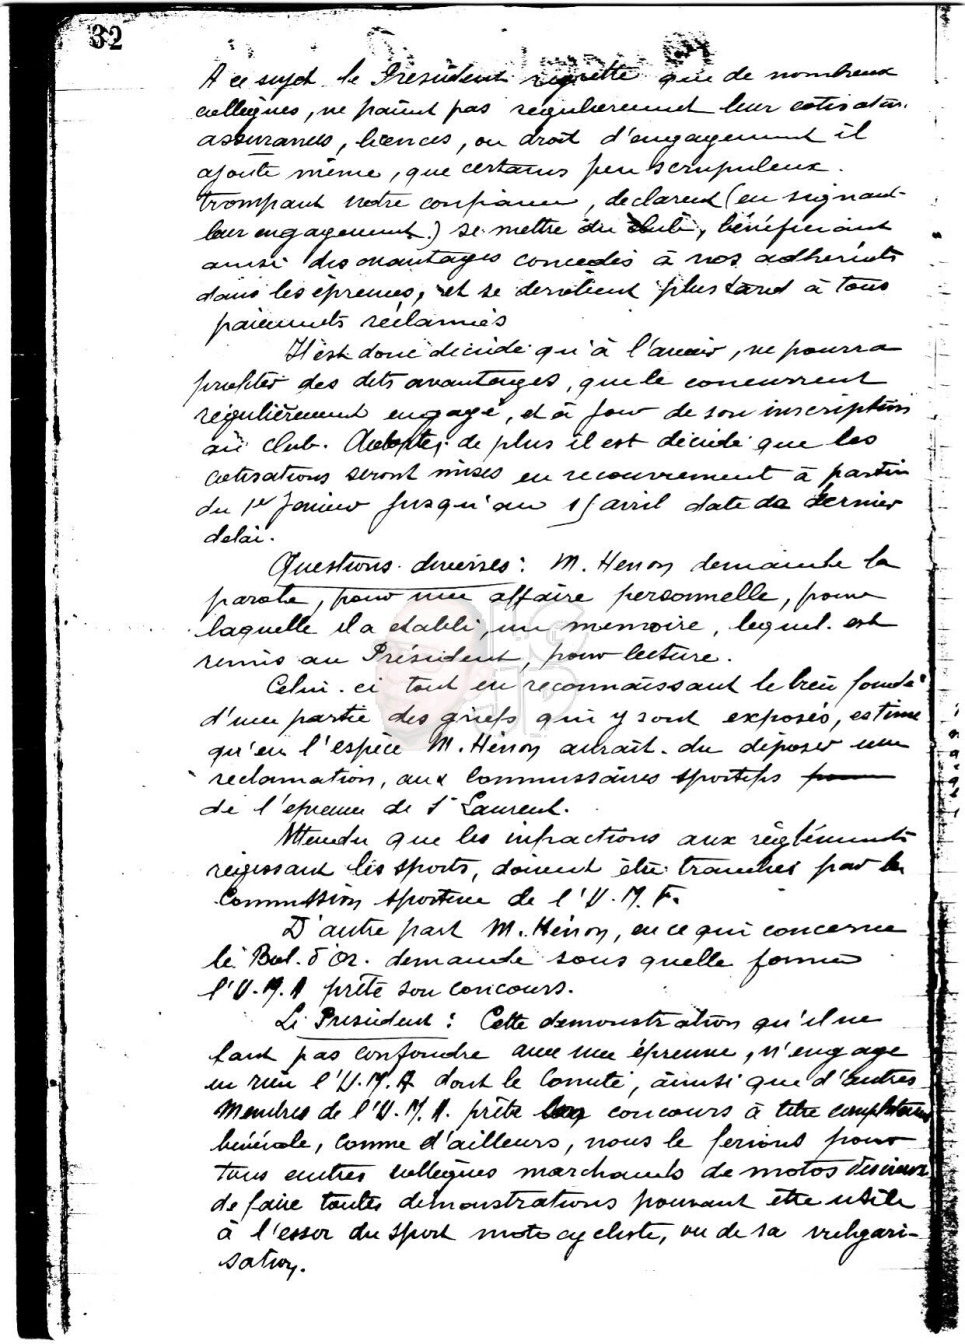 32
A ce sujet le Président regrette que de nombreux
collègues, ne paient pas régulièrement leur cotisation
assurances, licences, ou droit d'engagement il
ajoute même, que certains peu scrupuleux.
trompant notre confiance, déclarent (en signant
leur engagement.) se mettre du club, bénéficiant
ainsi des avantages concédés à nos adhérents
dans les épreuves, et se dérobent plus tard à tous
paiements réclamés
Il est donc décidé qu'à l'avenir, ne pourra
profiter des dits avantages, que le concurrent
régulièrement engagé, et à jour de son inscription
au club. Adopté, de plus il est décidé que les
cotisations seront mises en recouvrement à partir
du 1er Janvier jusqu'au 15 avril date de dernier
délai.
Questions diverses: M. Henon demande la
parole, pour une affaire personnelle, pour
laquelle il a établi, un mémoire, lequel est
remis au Président, pour lecture.
Celui-ci tout en reconnaissant le bien fondé
d'une partie des griefs qui y sont exposés, estime
qu'en l'espèce M. Hénon aurait du déposer une
reclamation, aux Commissaires sportifs
de l'épreuve de St Laurent.
Attendu que les infractions aux règlements
régissant les sports, doivent être tranchés par la
Commission sportive de l'U.M.F.
D'autre part M. Hénon, en ce qui concerne
le Bol d'Or. demande sous quelle forme
l'U.M.A prête son concours.
Le Président: Cette démonstration qu'il ne
faut pas confondre avec une épreuve, n'engage
en rien l'U.M.A dont le Comité, ainsi que d'autres
Membres de l'U.M.A. prête concours à titre complètement
bénévole, comme d'ailleurs, nous le ferions pour
tous autres collègues marchands de motos désireux
de faire toutes démonstrations pouvant être utile
à l'essor du sport motocycliste, ou de sa vulgari-
sation.